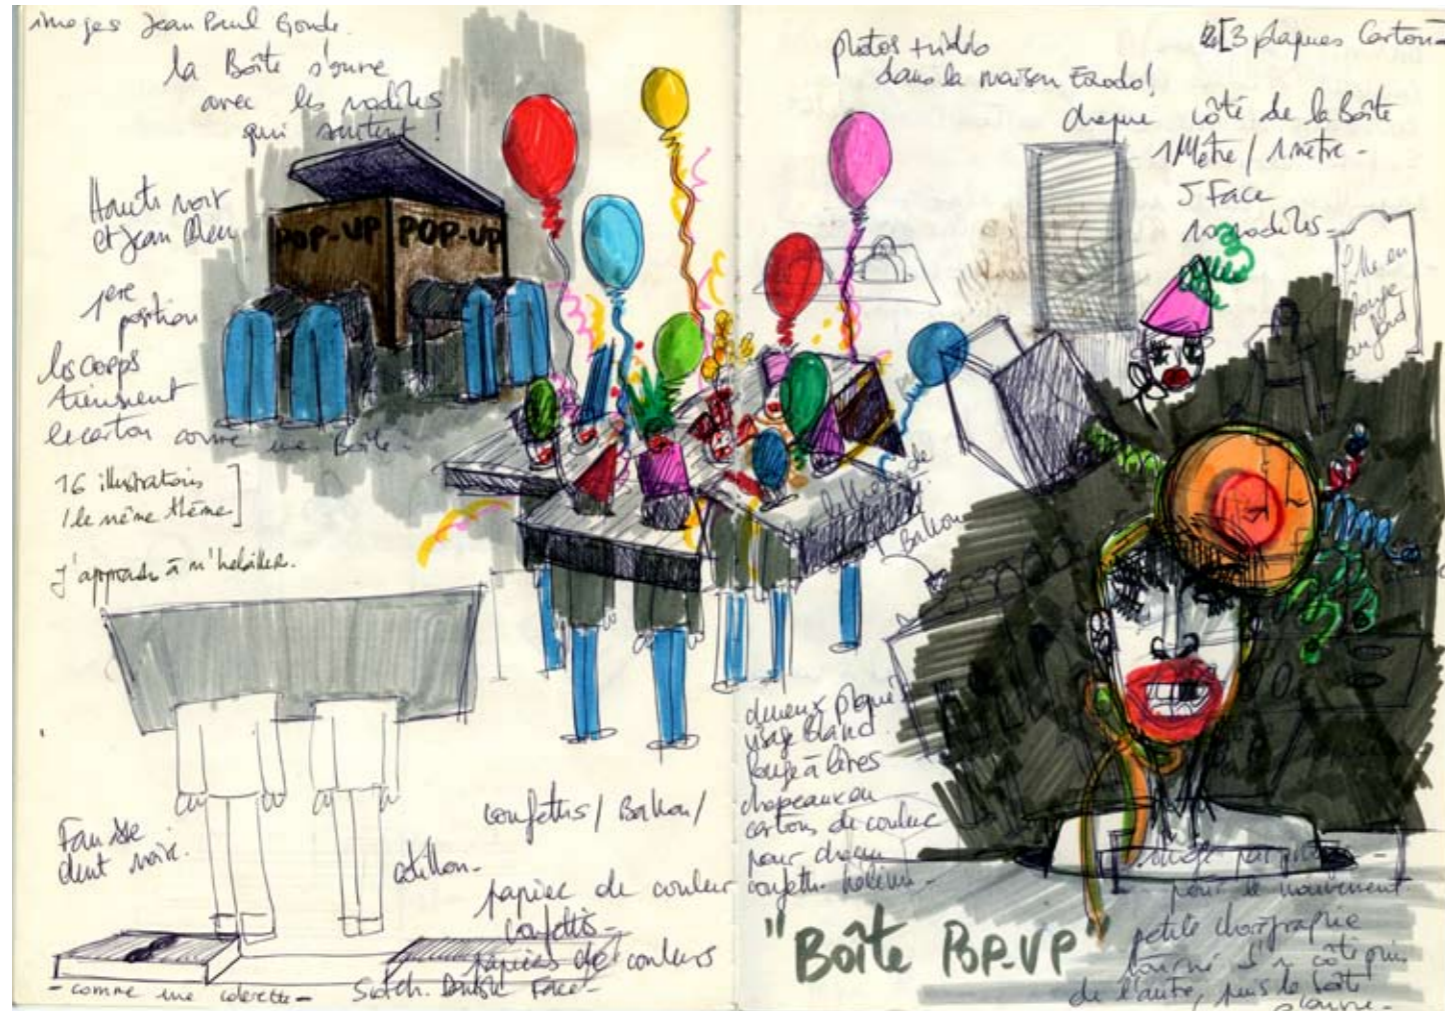 images Jean Paul Goude.
la Boîte s'ouvre
avec les modèles
qui sortent !
Hauts noir
et Jean bleu
1ere
position
les corps
tiennent
le carton comme une Boîte -
16 illustrations
/ le même thème
j'apprends à m'habiller.
POP-UP POP-UP
Fausse
dent noire.
cotillon -
confettis / Ballon /
papier de couleur
confettis -
papiers de couleurs
- comme une colerette -
Scotch. Double Face -
photos + vidéo
dans la maison
3 plaques Carton -
chaque côté de la Boîte
1 Mètre / 1 mètre -
5 Face
10 modèles -
en
rouge
au fond
Ballon
cheveux plaqué
visage Blanc
Rouge à lèvres
chapeaux en
cartons de couleur
pour chacun
confettis. hélium -
"Boîte POP-UP"
pour le mouvement
petite chorégraphie
tourné d'1 côté puis
de l'autre, puis la boîte
s'ouvre -